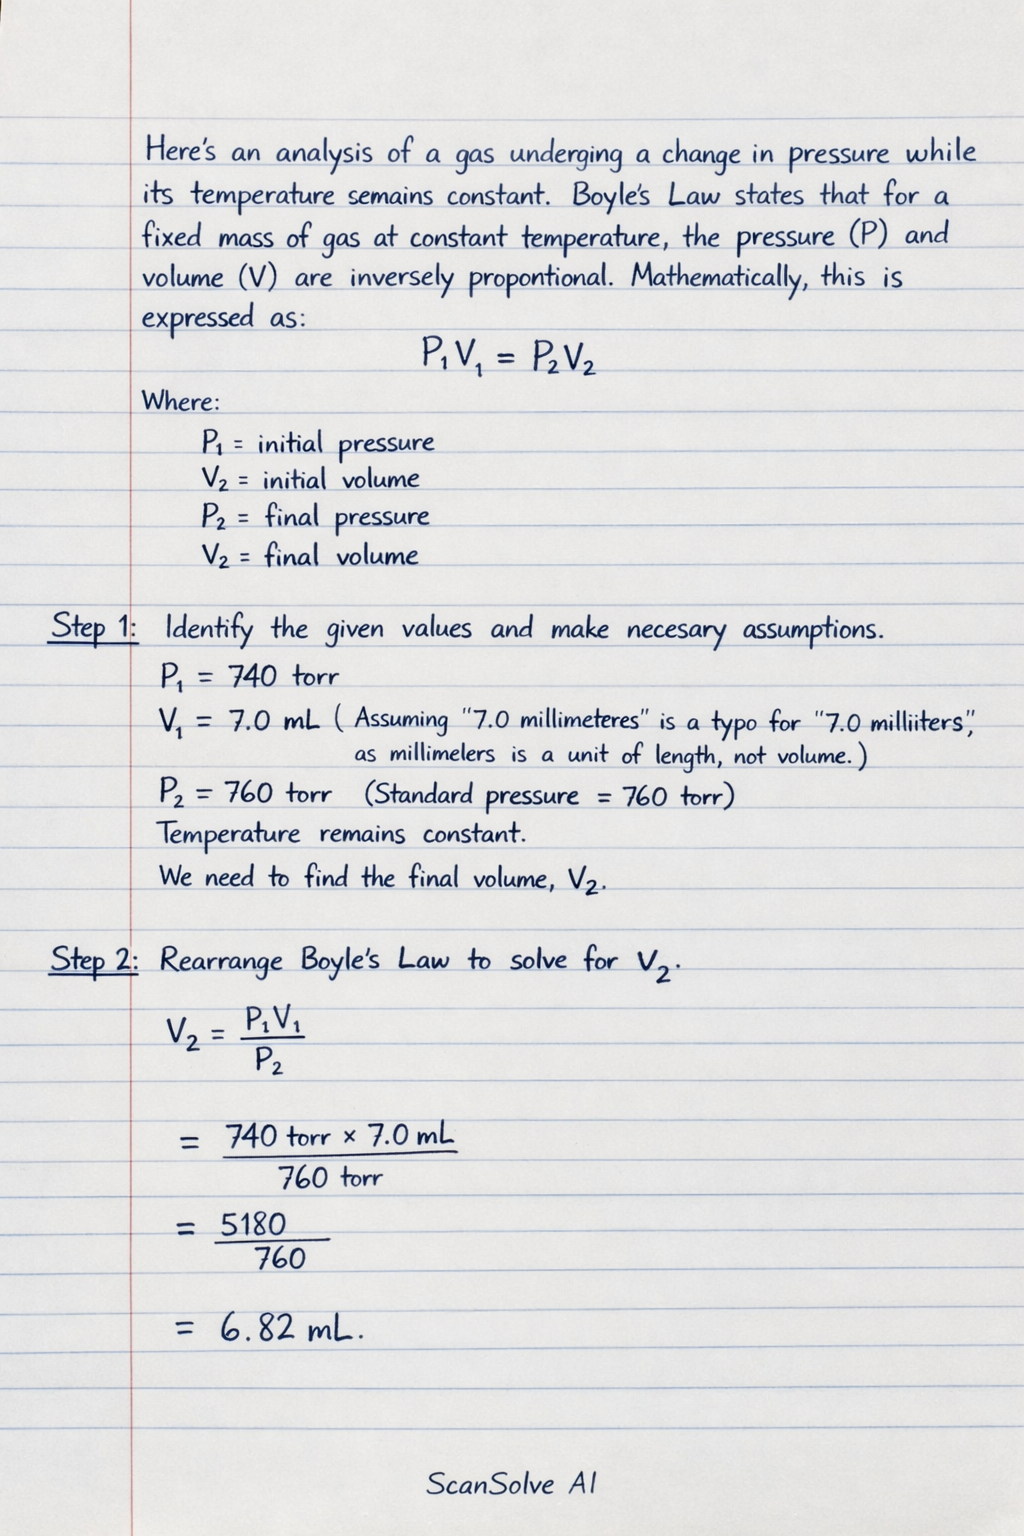 Here's an analysis of a gas underging a change in pressure while
its temperature semains constant. Boyle's Law states that for a
fixed mass of gas at constant temperature, the pressure (P) and
volume (V) are inversely propontional. Mathematically, this is
expressed as:
P₁V₁ = P₂V₂
Where:
P₁ = initial pressure
V₂ = initial volume
P₂ = final pressure
V₂ = final volume
Step 1: Identify the given values and make necesary assumptions.
P₁ = 740 torr
V₁ = 7.0 mL ( Assuming "7.0 millimeteres" is a typo for "7.0 milliiters",
as millimelers is a unit of length, not volume.)
P₂ = 760 torr (Standard pressure = 760 torr)
Temperature remains constant.
We need to find the final volume, V₂.
Step 2: Rearrange Boyle's Law to solve for V₂.
V₂ = P₁V₁
P₂
= 740 torr × 7.0 mL
760 torr
= 5180
760
= 6.82 mL.
ScanSolve AI